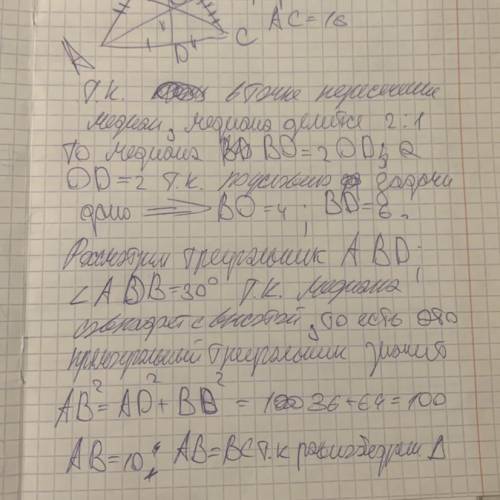 AC=16
A
D
C
Т.К. в точке пересечения
медиан, медиана делится 2:1
то медиана BO=2OD; а
OD=2 т.к. по условию задачи
дано ⟹ BO=4; BD=6.
Рассмотрим треугольник ABD;
∠ADB=30° т.К. медиана
совпадает с высотой, то есть это
прямоугольный треугольник значит
AB²=AD²+BD² = 36+64=100
AB=10; AB=BC т.к равнобедрен Δ